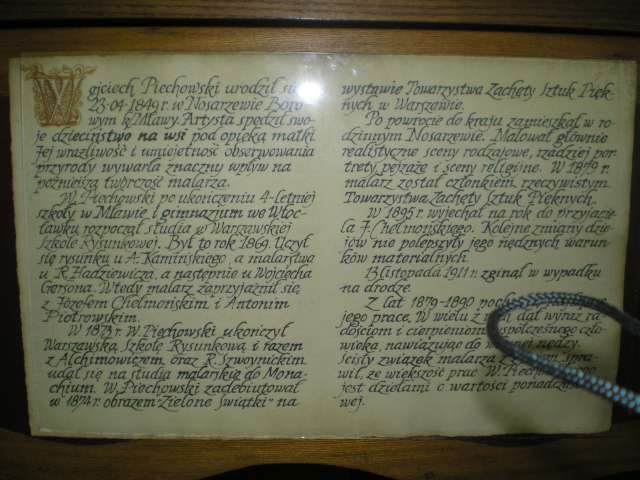 Wojciech Piechowski urodził się
23·04·1849 r. w Nosarzewie Boro
wym k. Mławy. Artysta spędził swo-
je dzieciństwo na wsi pod opieką matki.
Jej wrażliwość i umiejętność obserwowania
przyrody wywarła znaczny wpływ na
późniejszą twórczość malarza.
W. Piechowski po ukończeniu 4-letniej
szkoły w Mławie i gimnazjum we Włoc-
ławku rozpoczął studia w Warszawskiej
Szkole Rysunkowej. Był to rok 1869. Uczył
się rysunku u A. Kamińskiego, a malarstwa
u R. Hadziewicza, a następnie u Wojciecha
Gersona. Wtedy malarz zaprzyjaźnił się
z Józefem Chełmońskim i Antonim
Piotrowskim.
W 1873 r. W. Piechowski ukończył
Warszawską Szkołę Rysunkową i razem
z Alchimowiczem oraz R. Szwoynickim
udał się na studia malarskie do Mona-
chium. W. Piechowski zadebiutował
w 1874 r. obrazem "Zielone Świątki" na
wystawie Towarzystwa Zachęty Sztuk Pięk-
nych w Warszawie.
Po powrocie do kraju zamieszkał w ro-
dzinnym Nosarzewie. Malował głównie
realistyczne sceny rodzajowe, rzadziej por-
trety, pejzaże i sceny religijne. W 1879 r.
malarz został członkiem rzeczywistym
Towarzystwa Zachęty Sztuk Pięknych.
W 1895 r. wyjechał na rok do przyjacie-
la J. Chełmońskiego. Kolejne zmiany dzie-
jów nie polepszyły jego nędznych warun-
ków materialnych.
13 listopada 1911 r. zginął w wypadku
na drodze.
Z lat 1879-1890
jego prace. W wielu z dał wyraz ra-
dościom i cierpieniom współczesnego czło-
wieka, nawiązując do nędzy.
Ścisły związek malarza z spra-
wił, że większość prac W. Piechowskiego
jest dziełami o wartości ponadczaso-
wej.